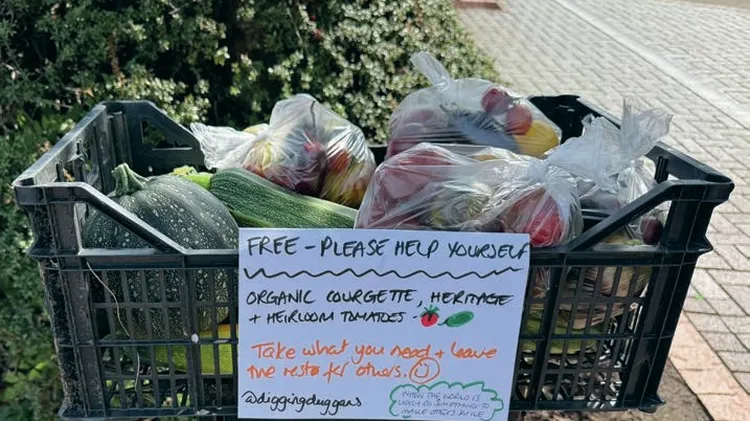 FREE - PLEASE HELP YOURSELF
ORGANIC COURGETTE, HERITAGE
+ HEIRLOOM TOMATOES -
Take what you need + leave
the rest for others.
@diggingduggans
WHEN THE WORLD IS
UGLY DO SOMETHING TO
MAKE OTHERS SMILE